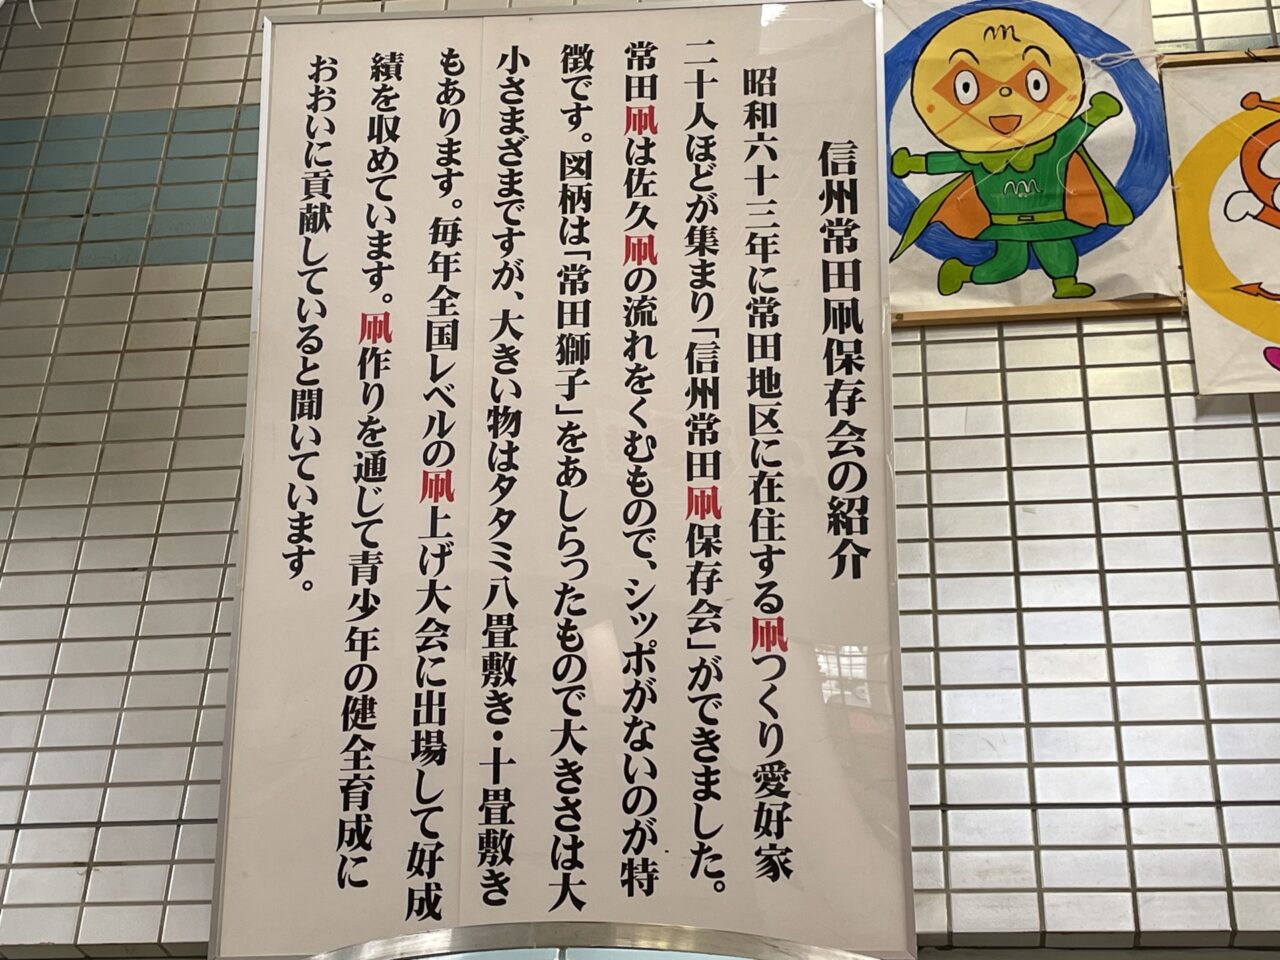 信州常田凧保存会の紹介
昭和六十三年に常田地区に在住する凧つくり愛好家
二十人ほどが集まり「信州常田凧保存会」ができました。
常田凧は佐久凧の流れをくむもので、シッポがないのが特
徴です。図柄は「常田獅子」をあしらったもので大きさは大
小さまざまですが、大きい物はタタミ八畳敷き・十畳敷き
もあります。毎年全国レベルの凧上げ大会に出場して好成
績を収めています。凧作りを通じて青少年の健全育成に
おおいに貢献していると聞いています。
m
m